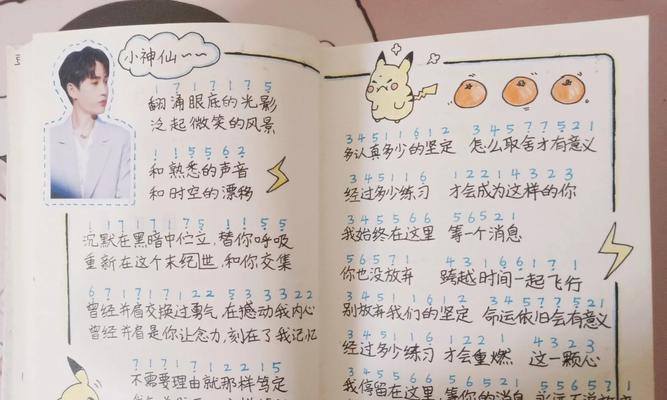 小神仙～～
1 7 1 7 1 7 5
翻涌眼底的光影
泛起微笑的风景
1 1 5 5 6 2
和熟悉的声音
和时空的漂移
1 1 7 1 7 1 7 5 1 1 5 5
沉默在黑暗中伫立,替你呼吸
重新在这个末纪世,和你交集
6 7 1 7 1 7 1 2 2 5 3 3 3 2 2
曾经并肩交换过勇气,在撼动我内心
曾经并肩是你让念力,刻在了我记忆
7 1 7 1 7 1 2 2 2 1
不需要理由就那样笃定
3 4 5 1 1 6 1 2 3 4 5 7 7 5 2 1
多认真多少的坚定 怎么取舍才有意义
3 4 5 1 1 6 1 2 2 1 4 3 2 3
经过多少练习 才会成为这样的你
3 4 5 5 6 6 5 6 5 2 1
我始终在这里 等一个消息
5 6 5 7 1 3 4 3 1 6 1 7 1
你也没放弃 跨越时间一起飞行
3 4 5 1 1 6 1 2 3 4 5 7 7 5 2 1
别放弃我们的坚定 命运依旧会有意义
3 4 5 1 1 6 1 2 2 1 4 3 2
经过多少练习 才会重燃 这一颗心
3 4 5 5 5 6 6 5 5 6 5 2 1
我停留在这里,等你的消息